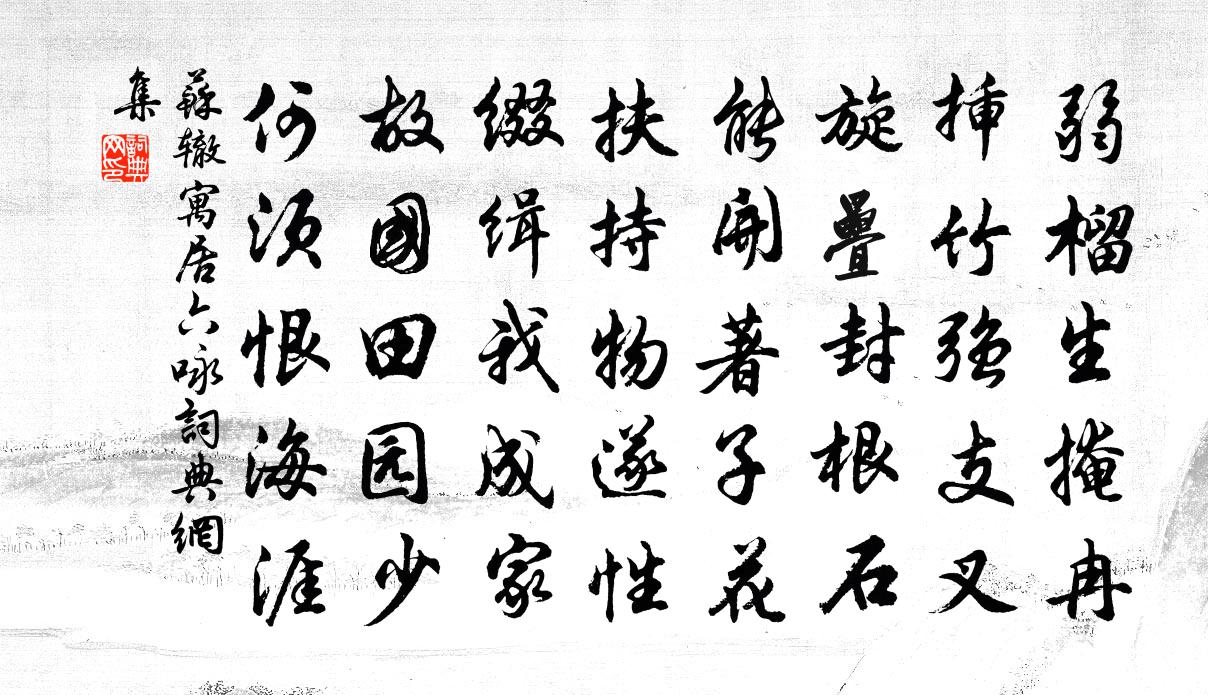 弱榴生掩冉
插竹强支叉
旋疊封根石
能開著子花
扶持物遂性
綴缉我成家
故國田园少
何須恨海涯
蘇辙寓居六咏詞典網
集
詞典网印